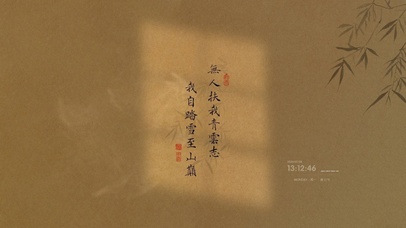 無人扶我青雲志
我自踏雪至山巔
13:12:46